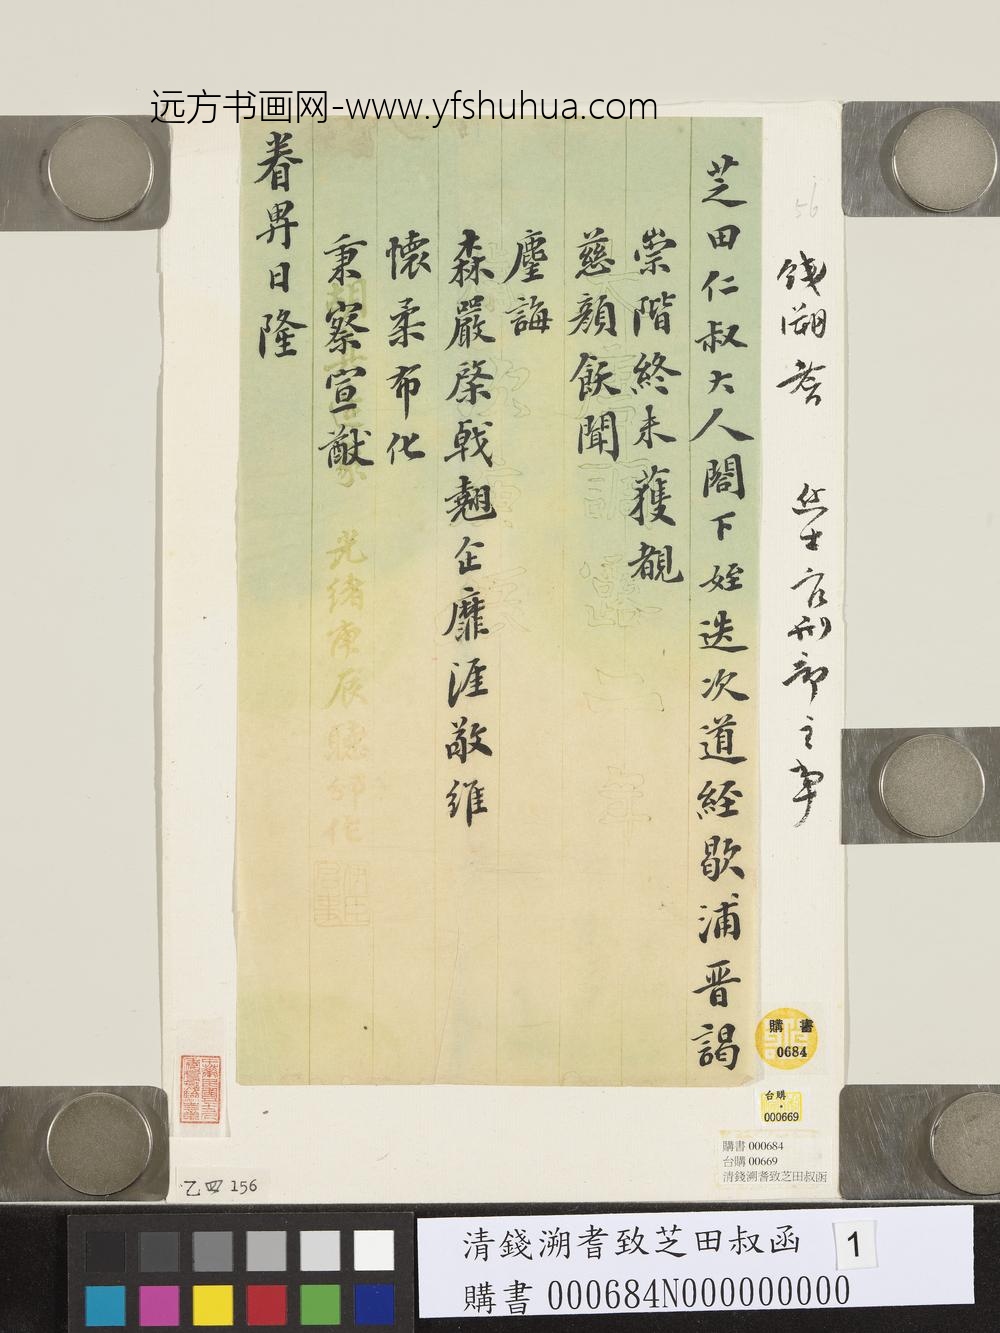 远方书画网-www.yfshuhua.com
56
錢溯耆
芝田仁叔大人閣下姪迭次道經歇浦晉謁
崇階終未獲覩
慈顏飫聞
麈誨
森嚴棨戟翹企靡涯敬維
懷柔布化
秉察宣猷
眷畀日隆
光緒庚辰聽邠作
購書
0684
台購
000669
購書 000684
台購 00669
清錢溯耆致芝田叔函
乙四 156
清錢溯耆致芝田叔函
1
購書 000684N000000000